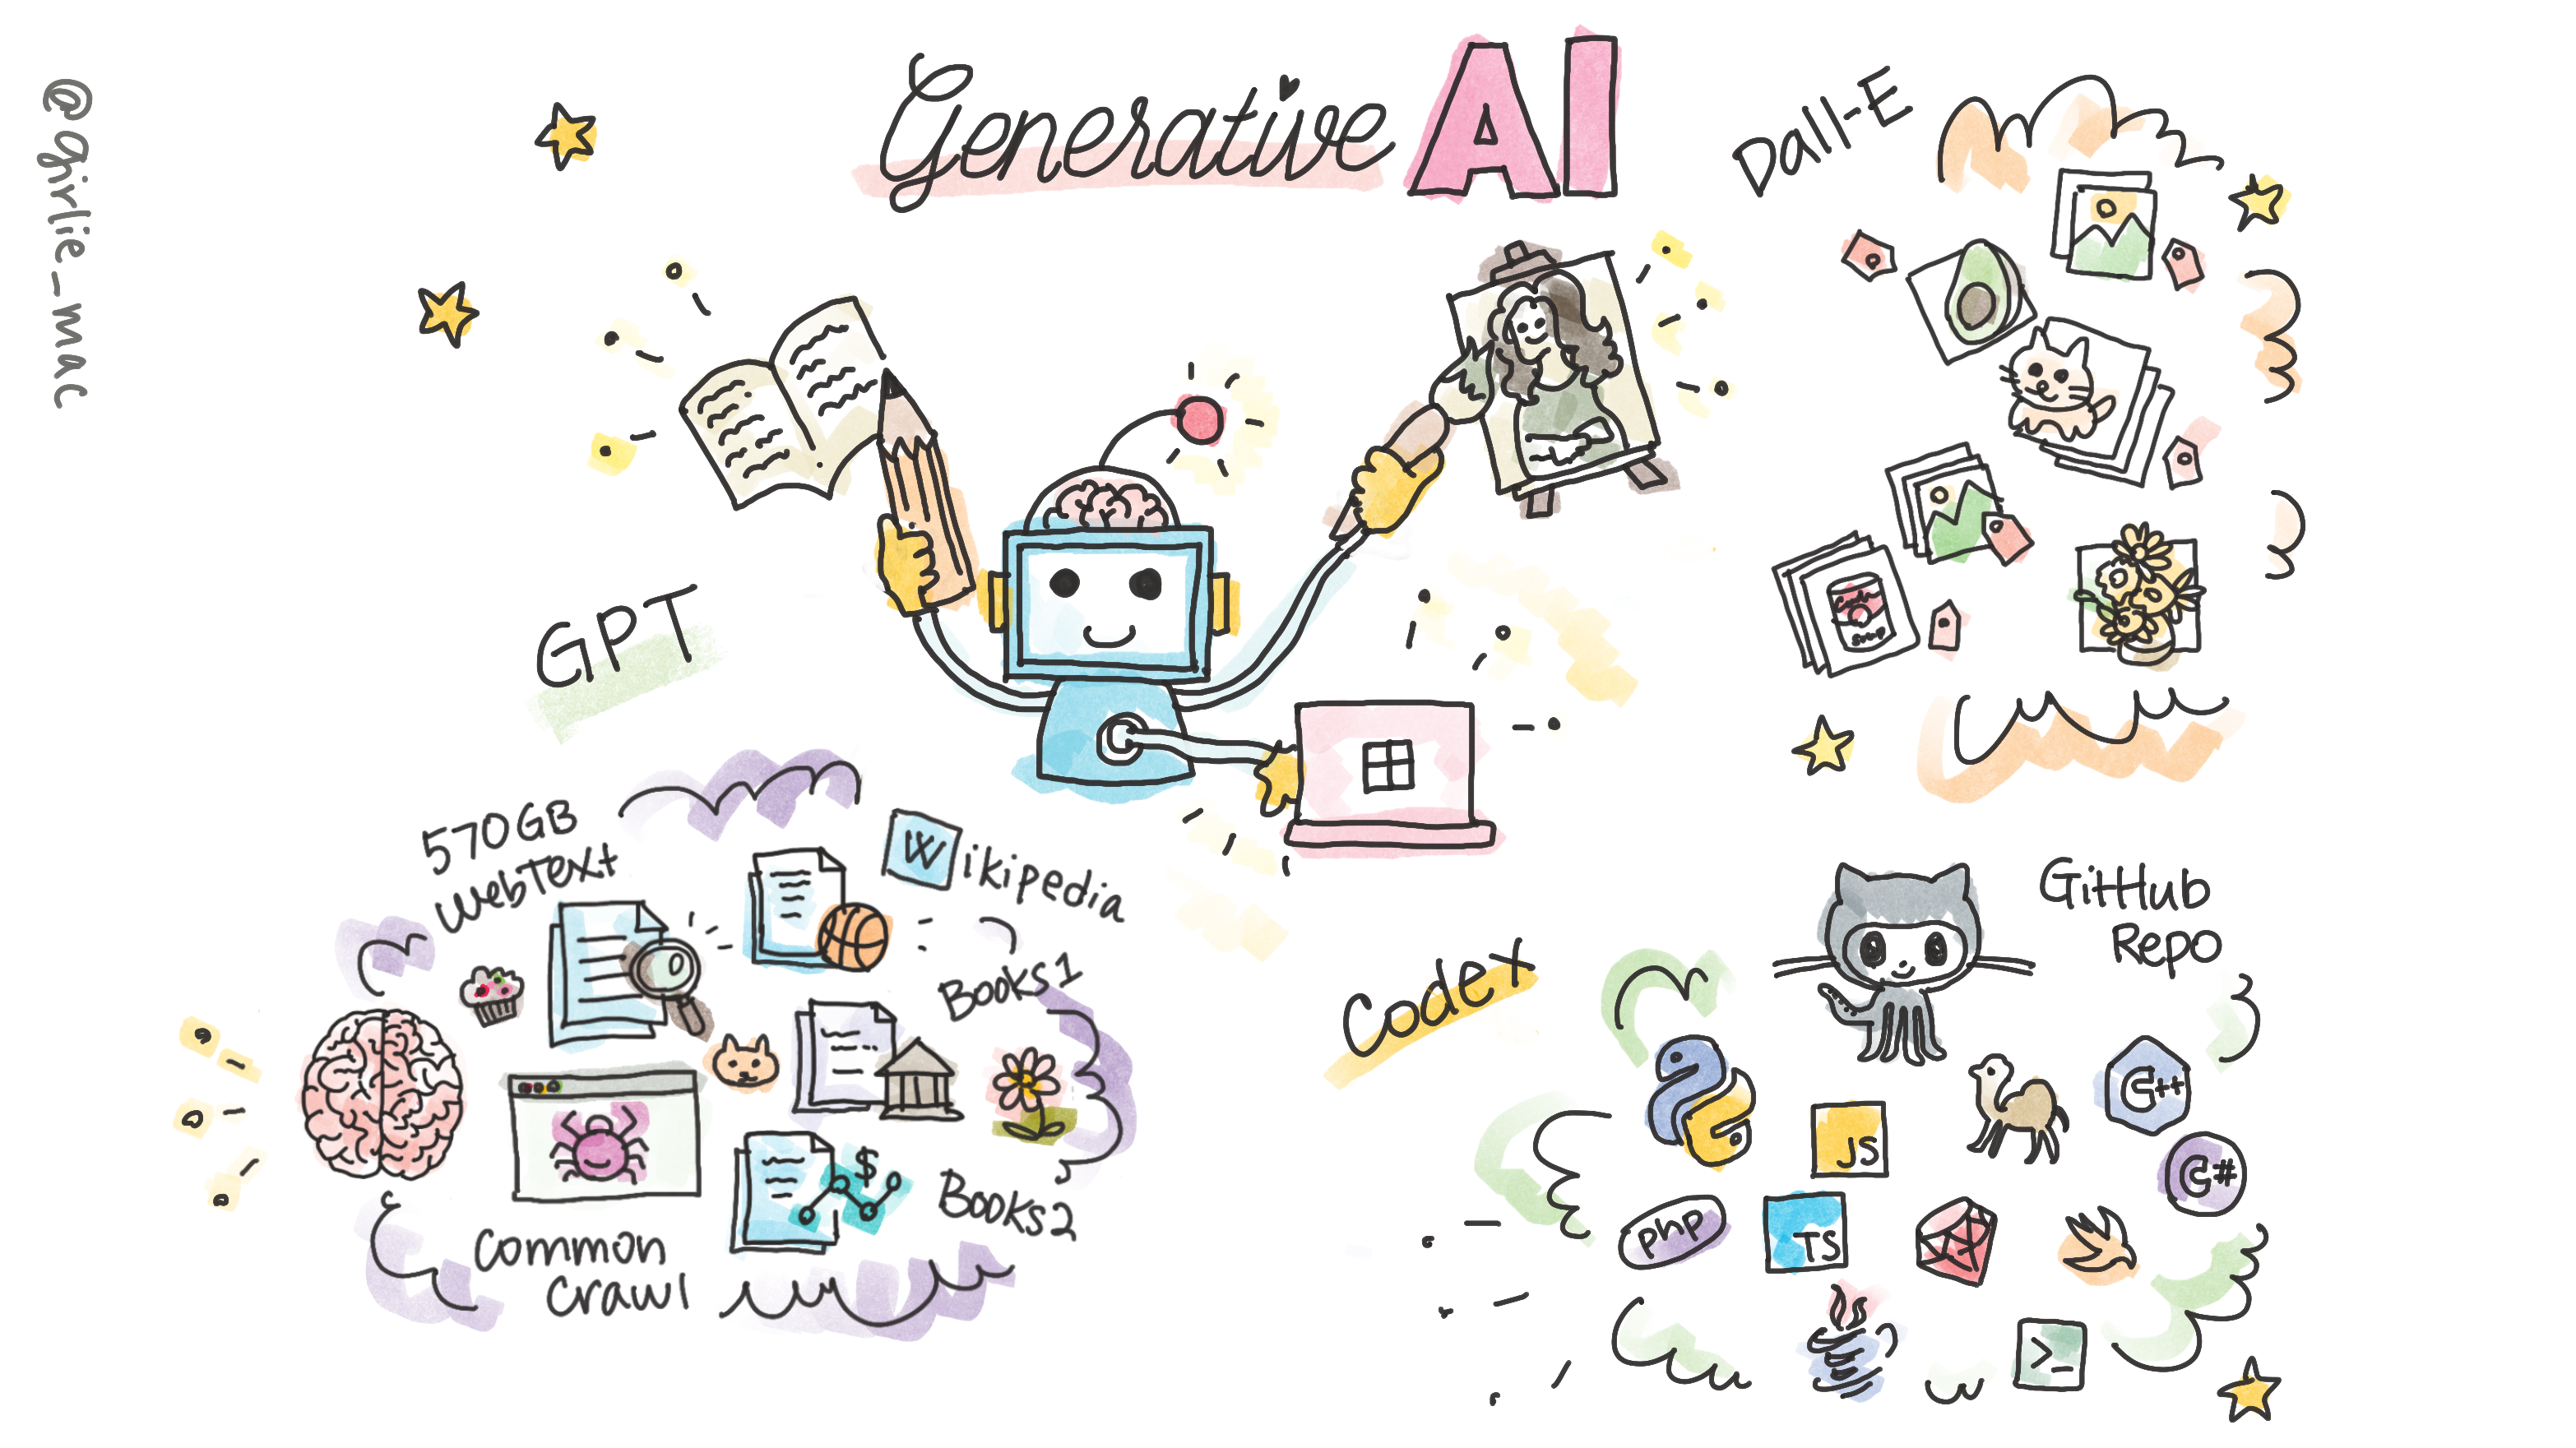 @girlie_mac
Generative AI
Dall-E
GPT
Soup
570GB
WebText
Wikipedia
Books1
$
Books2
Common
Crawl
Codex
GitHub
Repo
C++
JS
C#
php
TS
>_